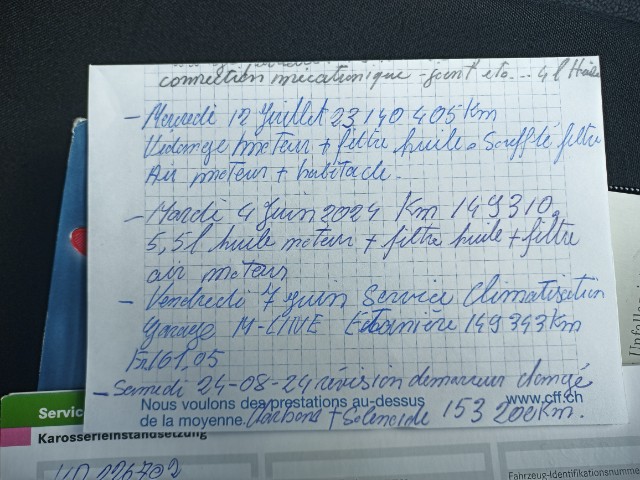 connection mécatronique - joint etc... 4 l Huile
- Mercredi 12 Juillet 23 140 405 Km
Vidange moteur + filtre huile. Soufflé filtre
Air moteur + habitacle.
- Mardi 4 Juin 2024 Km 149310,
5,5 l huile moteur + filtre huile + filtre
air moteur
- Vendredi 7 juin Service Climatisation
garage M-LINE 149 343 Km
Fr 161,05
- Samedi 24-08-24 révision demarreur changé
Nous voulons des prestations au-dessus www.cff.ch
de la moyenne. Charbons + Solenoide 153 200 Km.
Servic
Karosserieinstandsetzung
Fahrzeug-Identifikationsnumme
Unfall